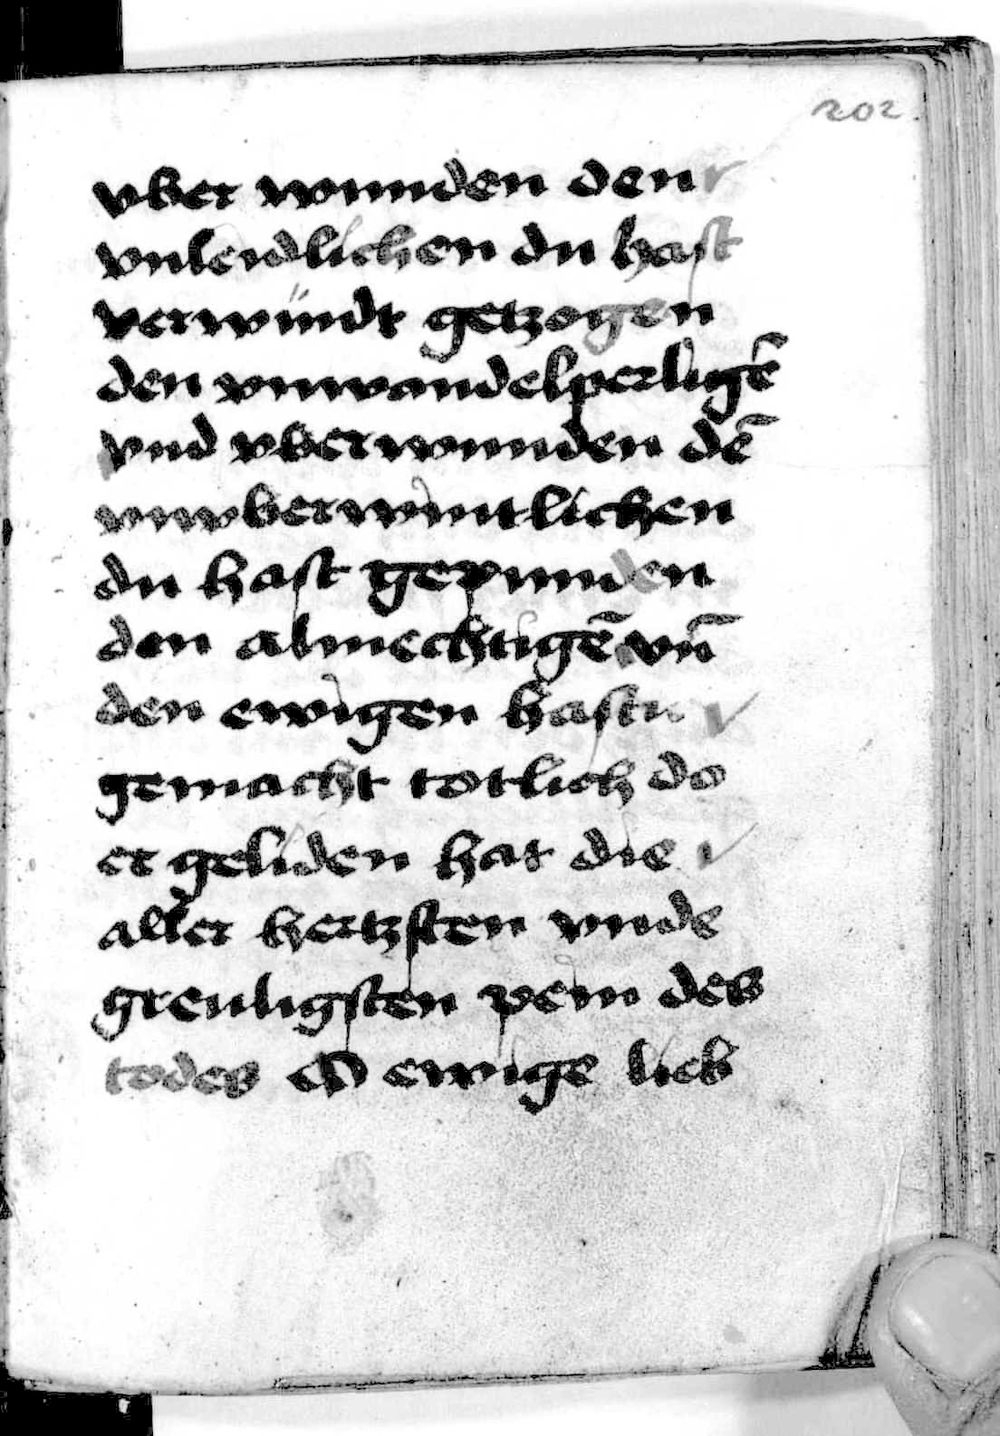 202
vber wunden den
vnleidlichen du hast
verwündt getzogen
den vnwandelperligē
vnd vberwunden dē
vnvberwintlichen
du hast gepunden
den almechtigē vn̄
den ewigen hastu
gemacht totlich do
er geliden hat die
aller hertzsten vnde
greuligsten pein des
todes O ewige lieb